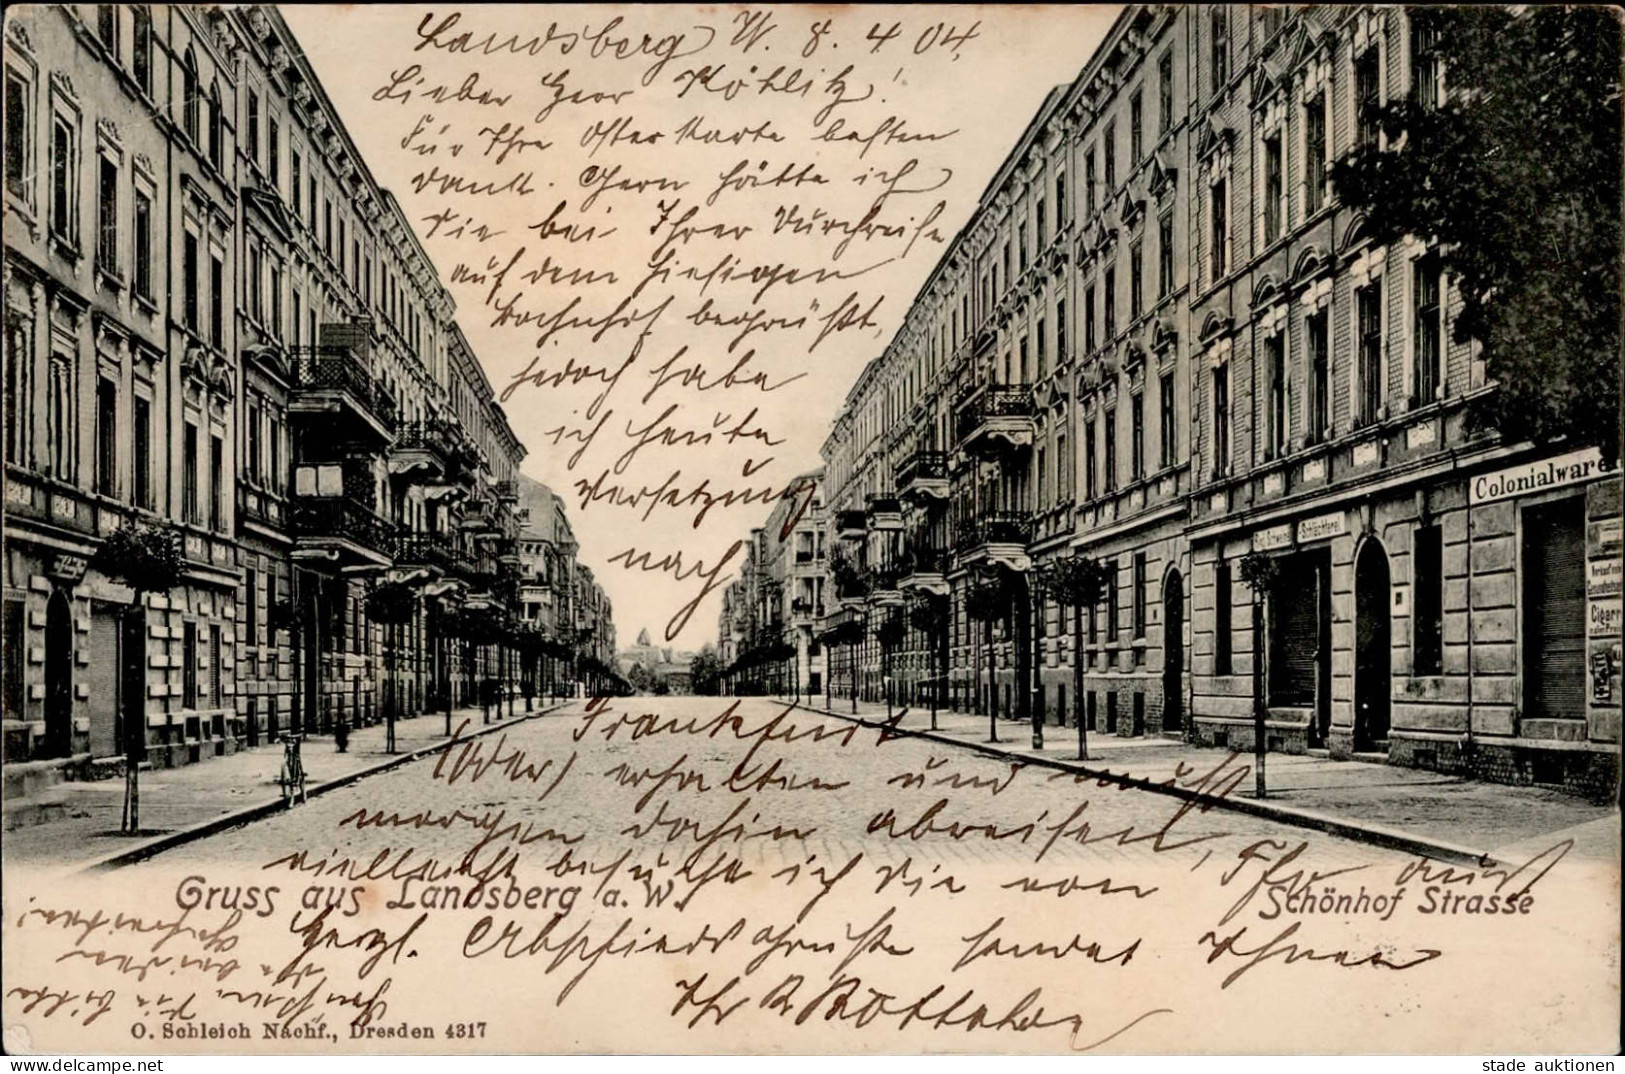 Landsberg W. 8. 4 04.
Lieber Herr Köhlitz!
Für Ihre Osterkarte besten
Dank. Gern hätte ich
Sie bei Ihrer Durchreise
auf dem hiesigen
Bahnhof begrüßt,
jedoch habe
ich heute
Versetzung
nach
Frankfurt
(Oder) erhalten und muß
morgen dahin abreisen,
vielleicht besuche ich Sie von
Herzl. Abschiedsgrüße sendet Ihnen
Ihr
Grüßen Sie bitte
die beiden
Colonialware
Schlächterei
Cigarr
Gruss aus Landsberg a. W.
Schönhof Strasse
O. Schleich Nachf., Dresden 4317
stade auktionen